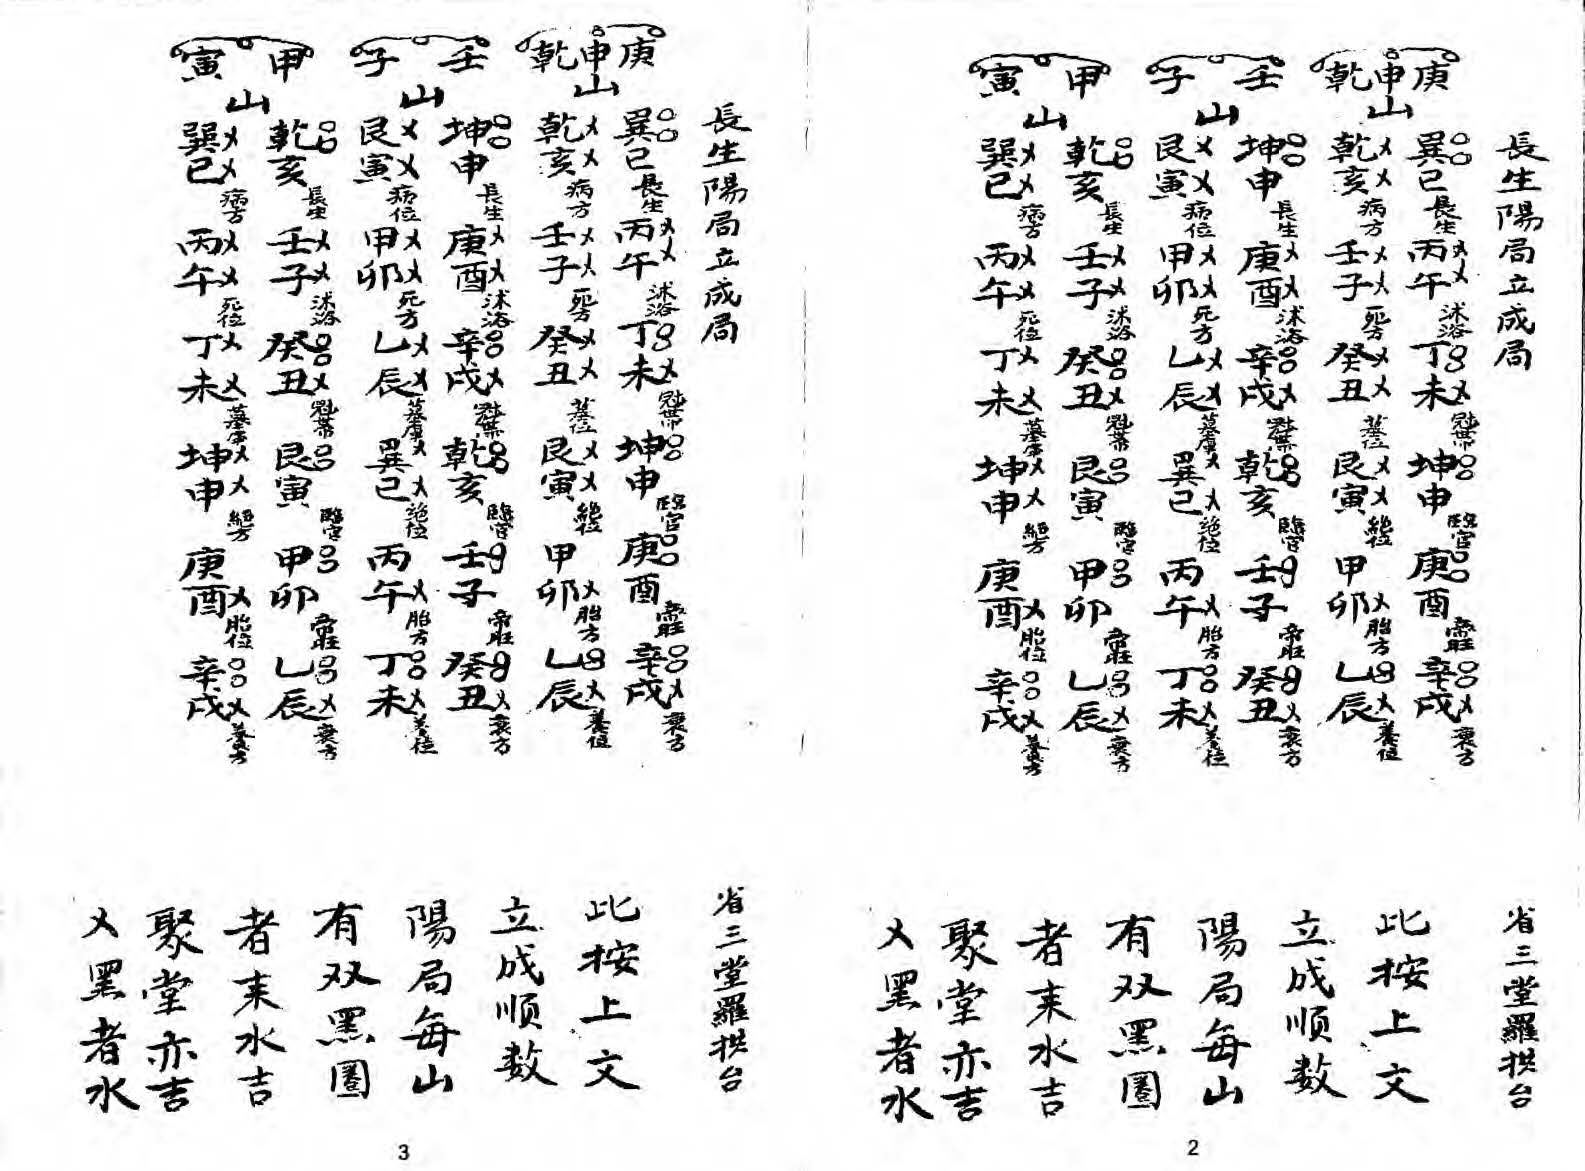 長生陽局立成局
庚申乾山
巽巳長生丙午沐浴丁未冠帶坤申臨官庚酉帝旺辛戌衰方
乾亥病方壬子死方癸丑墓位艮寅絕位甲卯胎方乙辰養位
壬子山
坤申長生庚酉沐浴辛戌冠帶乾亥臨官壬子帝旺癸丑衰方
艮寅病位甲卯死方乙辰墓庫巽巳絕位丙午胎方丁未養位
甲寅山
乾亥長生壬子沐浴癸丑冠帶艮寅臨官甲卯帝旺乙辰衰方
巽巳病方丙午死位丁未墓庫坤申絕方庚酉胎位辛戌養方
省三堂羅拱台
此按上文
立成顺数
陽局每山
有双黑圈
者来水吉
聚堂亦吉
乂黑者水
2
長生陽局立成局
庚申乾山
巽巳長生丙午沐浴丁未冠帶坤申臨官庚酉帝旺辛戌衰方
乾亥病方壬子死方癸丑墓位艮寅絕位甲卯胎方乙辰養位
壬子山
坤申長生庚酉沐浴辛戌冠帶乾亥臨官壬子帝旺癸丑衰方
艮寅病位甲卯死方乙辰墓庫巽巳絕位丙午胎方丁未養位
甲寅山
乾亥長生壬子沐浴癸丑冠帶艮寅臨官甲卯帝旺乙辰衰方
巽巳病方丙午死位丁未墓庫坤申絕方庚酉胎位辛戌養方
省三堂羅拱台
此按上文
立成顺数
陽局每山
有双黑圈
者来水吉
聚堂亦吉
乂黑者水
3